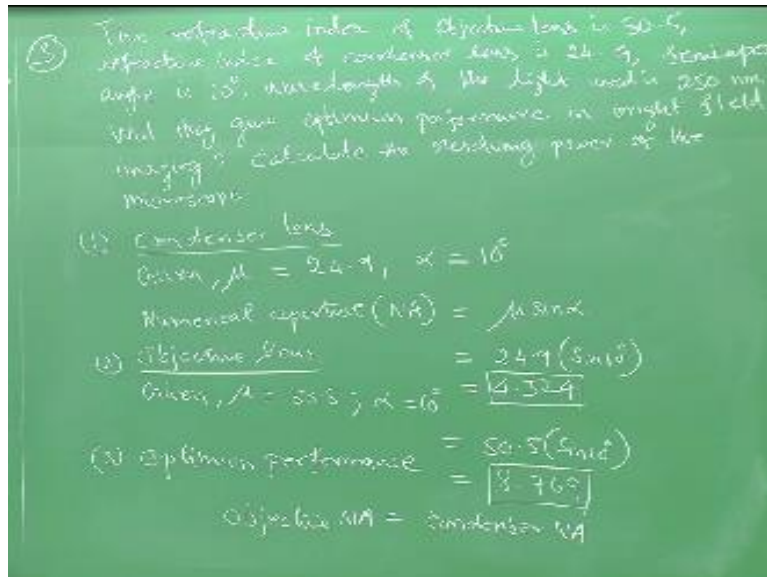 (3) The refractive index of Objective lens is 50.5,
refractive index of condenser lens is 24.9, semiape
angle is 10°, wavelength of the light used is 250 nm.
Will they give optimum performance in bright field
imaging? Calculate the resolving power of the
microscope
(1) Condenser lens
Given, μ = 24.9, α = 10°
Numerical aperture (NA) = μ sinα
= 24.9 (Sin10°)
= 4.324
(2) Objective lens
Given, μ = 50.5; α = 10°
= 50.5 (Sin10°)
= 8.769
(3) Optimum performance
Objective NA = Condenser NA